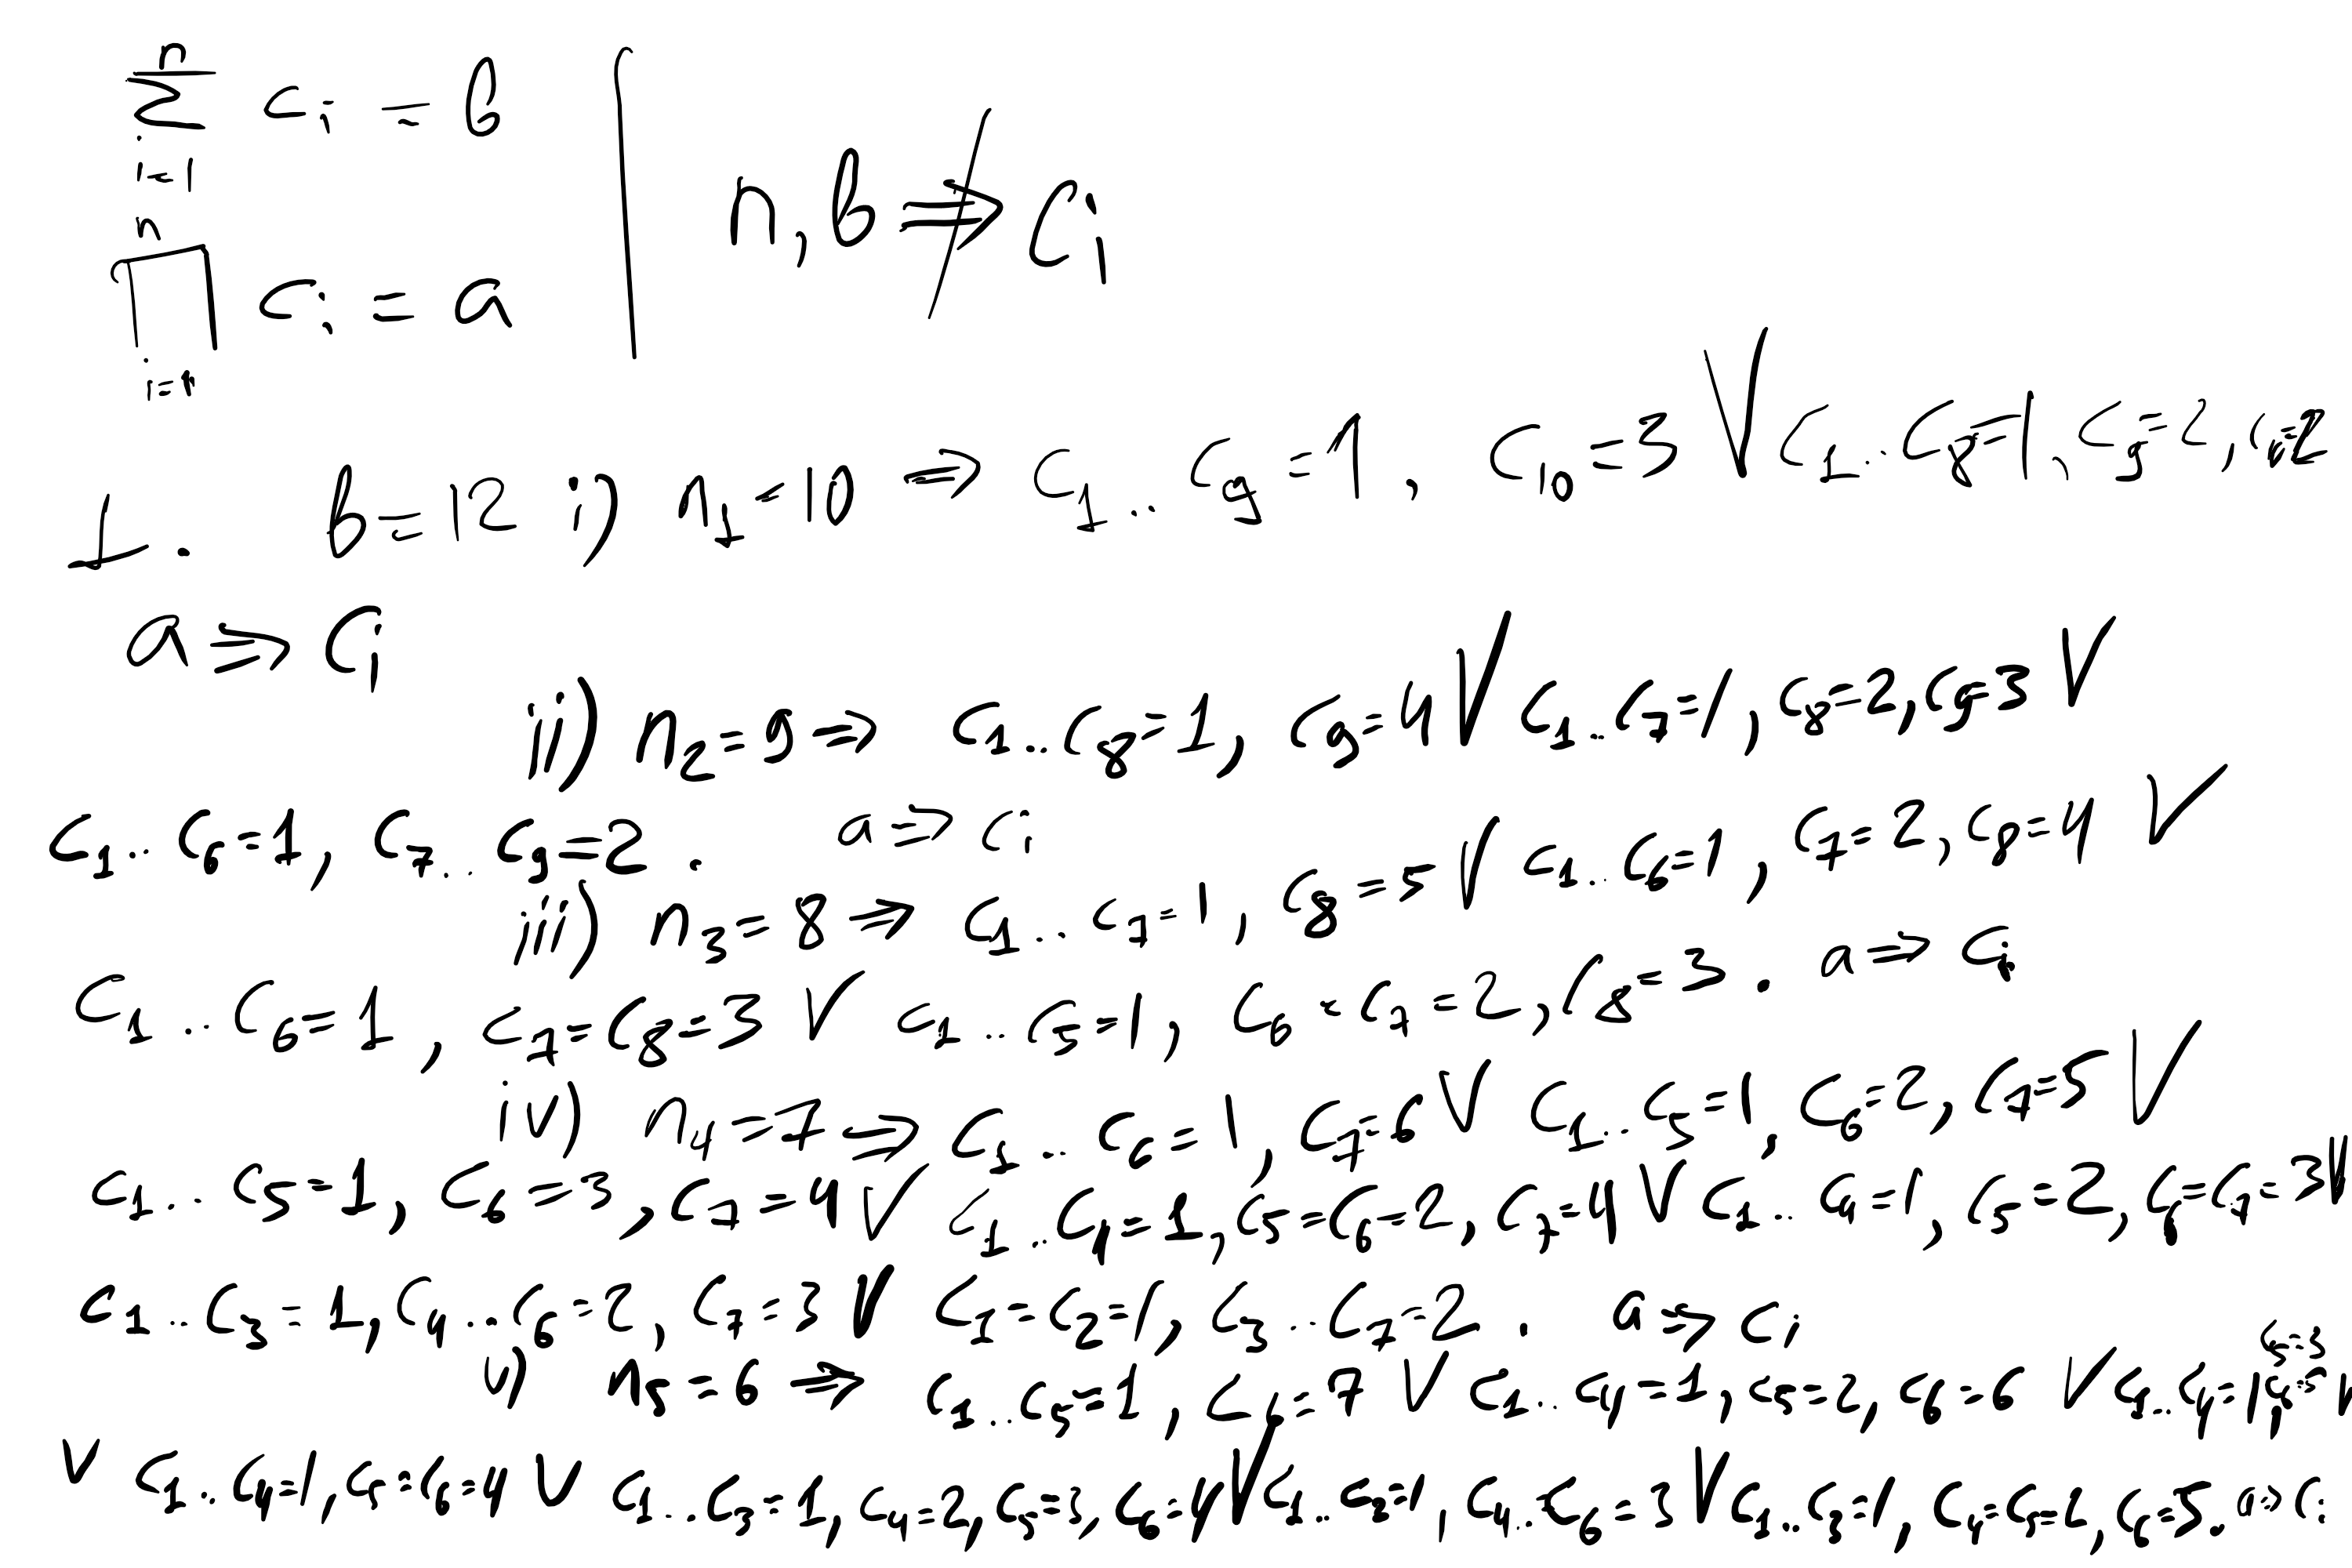 n
Σ c_i = b
i=1
n
∏ c_i = a
i=1
n, b ⇏ c_i
1. b=12 i) n_1=10 ⇒ c_1..c_9=1, c_10=3 ∨ c_1..c_8=1, c_9=2, c_10=2
a ⇒ c_i
ii) n_2=9 ⇒ c_1..c_8=1, c_9=4 ∨ c_1..c_7=1, c_8=2, c_9=3 ∨
c_1..c_6=1, c_7..c_9=2. a ⇒ c_i
iii) n_3=8 ⇒ c_1..c_7=1, c_8=5 ∨ c_1..c_6=1, c_7=2, c_8=4 ∨
c_1..c_6=1, c_7=c_8=3 ∨ c_1..c_5=1, c_6=c_7=2, c_8=3. a ⇒ c_i
iv) n_4=7 ⇒ c_1..c_6=1, c_7=6 ∨ c_1..c_5=1, c_6=2, c_7=5 ∨
c_1..c_5=1, c_6=3, c_7=4 ∨ c_1..c_4=1, c_5=c_6=2, c_7=4 ∨ c_1..c_4=1, c_5=2, c_6=c_7=3 ∨
c_1..c_3=1, c_4..c_6=2, c_7=3 ∨ c_1=c_2=1, c_3..c_7=2. a ⇒ c_i
v) n_5=6 ⇒ c_1..c_5=1, c_6=7 ∨ c_1..c_4=1, c_5=2, c_6=6 ∨ c_1..c_4=1, c_5=3
∨ c_1..c_4=1, c_5=c_6=4 ∨ c_1..c_3=1, c_4=2, c_5=3, c_6=4 ∨ c_1..c_3=1, c_4..c_6=3 ∨ c_1..c_3=1, c_4=c_5=2, c_6=5. a ⇒ c_i